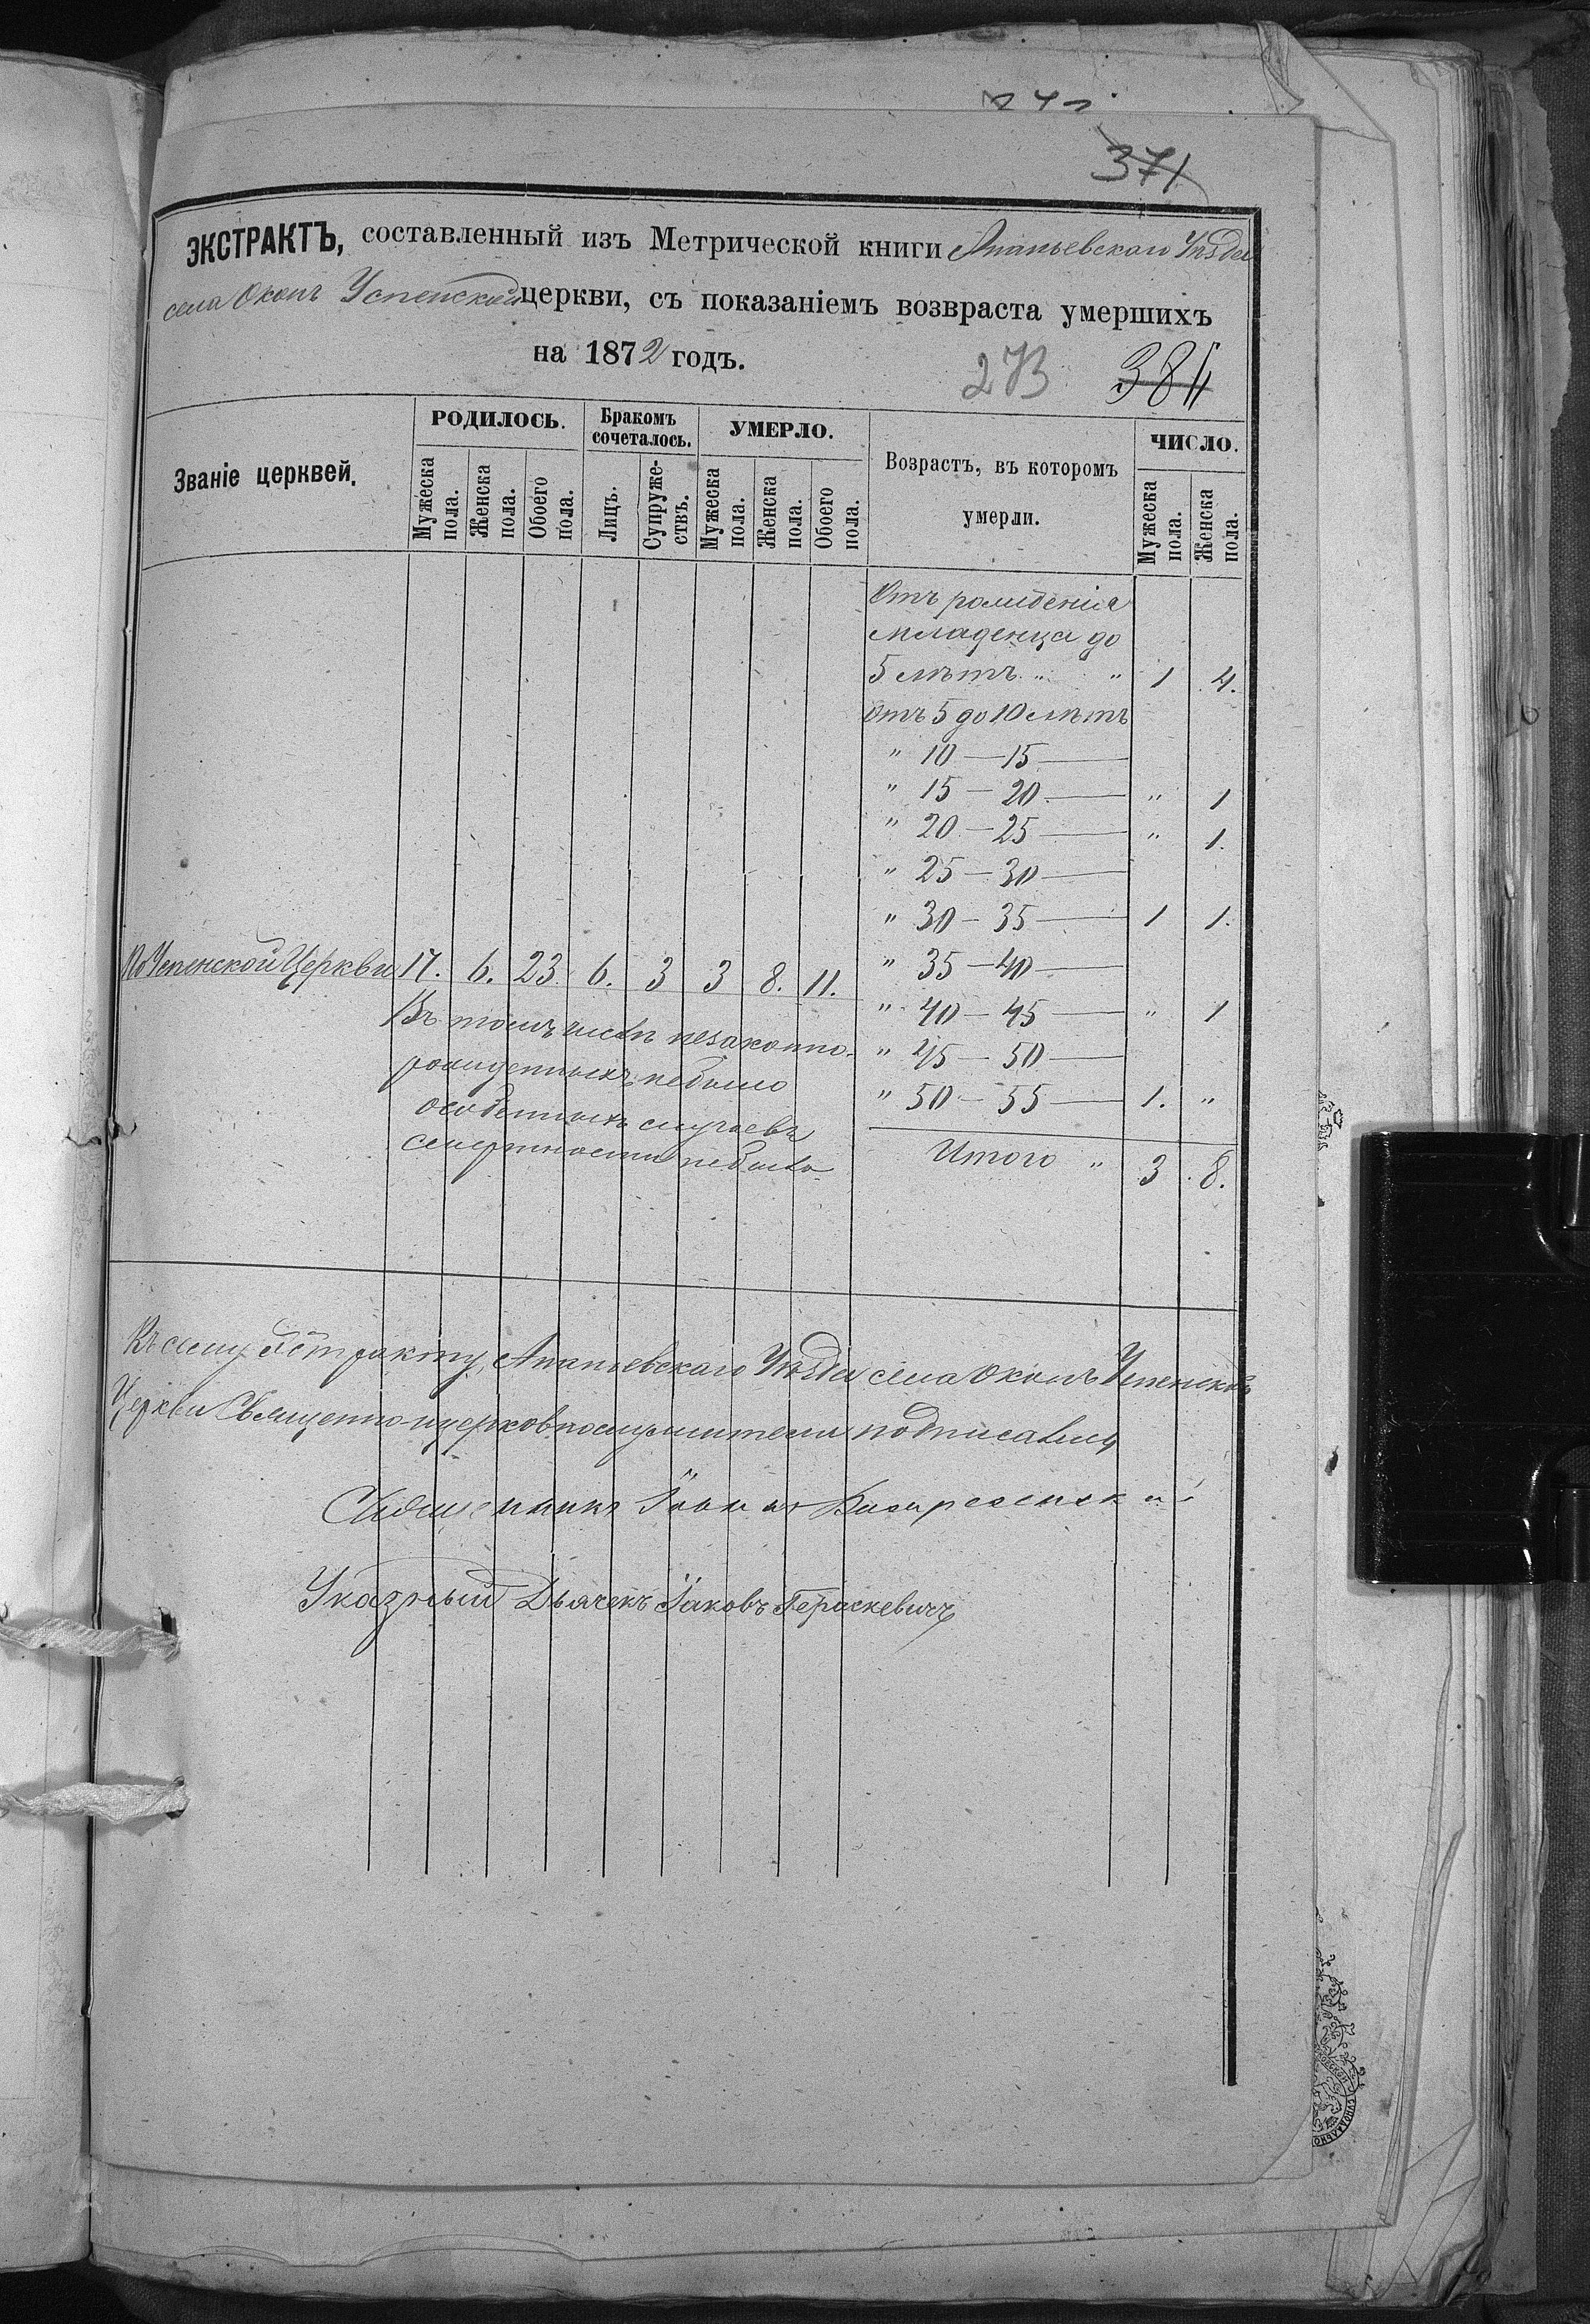 371
ЭКСТРАКТЪ, составленный изъ Метрической книги Ананьевскаго Уѣзда
села Окопъ Успенской церкви, съ показаніемъ возвраста умершихъ
на 1872 годъ.
273 384
Званіе церквей.
РОДИЛОСЬ.
Бракомъ сочеталось.
УМЕРЛО.
Возрастъ, въ которомъ умерли.
ЧИСЛО.
Мужеска пола.
Женска пола.
Обоего пола.
Лицъ.
Супруже-ствъ.
Мужеска пола.
Женска пола.
Обоего пола.
Мужеска пола.
Женска пола.
Отъ рожденія
младенца до
5 лѣтъ " " 1 4.
Отъ 5 до 10 лѣтъ
" 10 — 15 —
" 15 — 20 — " 1
" 20 — 25 — " 1.
" 25 — 30 —
" 30 — 35 — 1 1.
" 35 — 40 —
" 40 — 45 — " 1
" 45 — 50 —
" 50 — 55 — 1. "
Итого " 3 8.
По Успенской Церкви 17. 6. 23. 6. 3 3 8. 11.
Въ томъ числѣ незаконно-
рожденныхъ небыло
особенныхъ случаевъ
смертности небыло
Къ сему Экстракту, Ананьевскаго Уѣзда села Окопъ Успенской
Церкви Священно-церковнослужители подписались
Священникъ Іоаннъ
Указный Дьячекъ Іаковъ Гераскевичъ